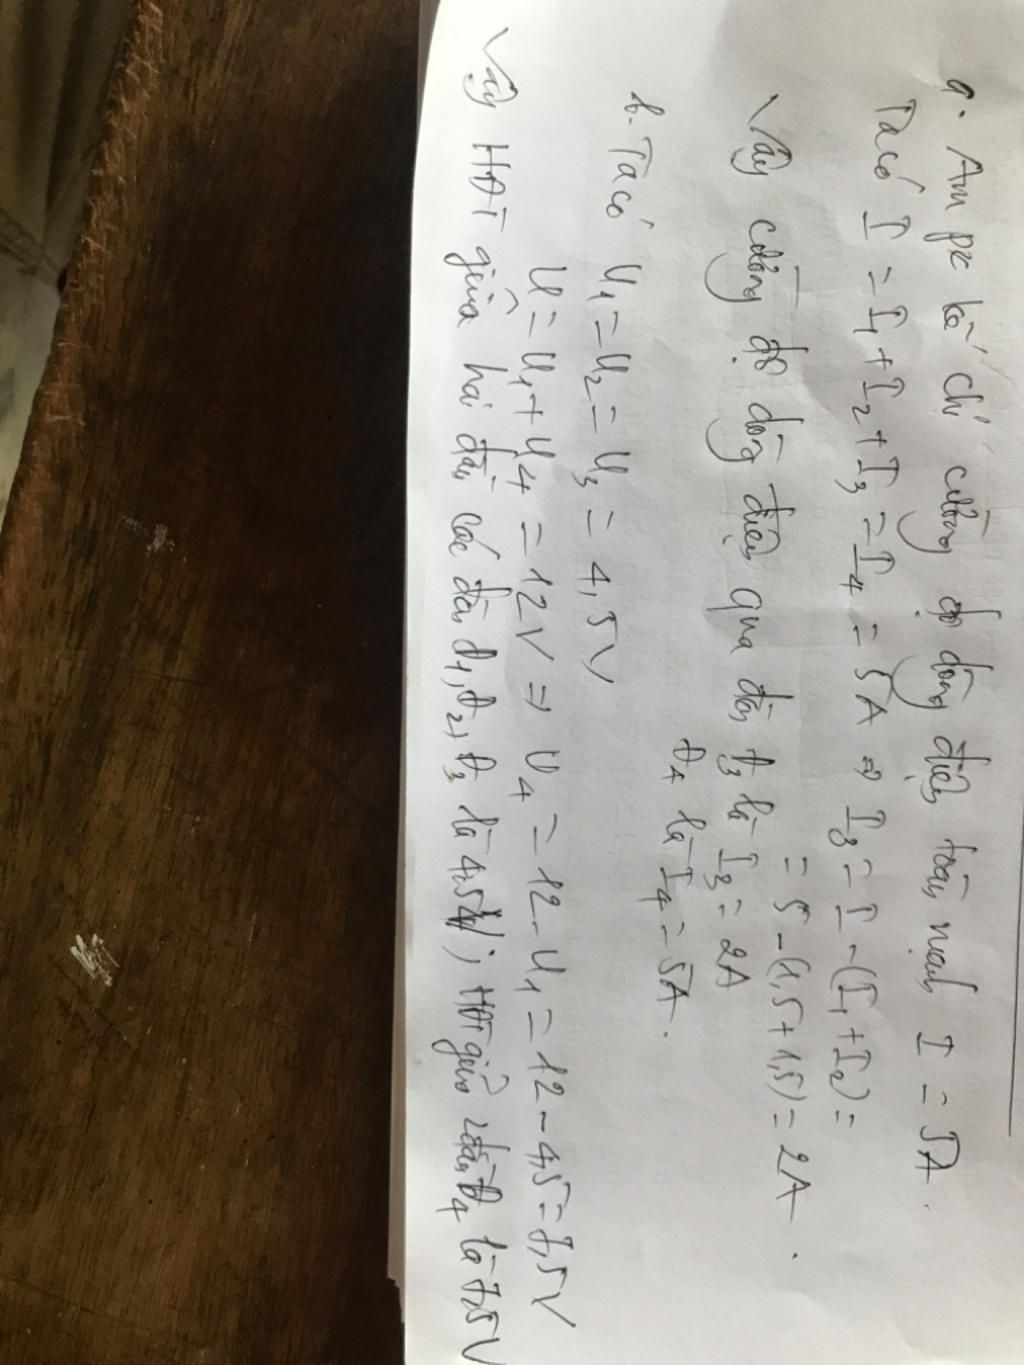 a. Ampe kế chỉ cường độ dòng điện toàn mạch I = 5A.
Ta có I = I₁ + I₂ + I₃ = I₄ = 5A ⇒ I₃ = I - (I₁ + I₂) =
= 5 - (1,5 + 1,5) = 2A.
Vậy cường độ dòng điện qua đèn Đ₃ là I₃ = 2A
Đ₄ là I₄ = 5A.
b. Ta có U₁ = U₂ = U₃ = 4,5V
U = U₁ + U₄ = 12V ⇒ U₄ = 12 - U₁ = 12 - 4,5 = 7,5V
Vậy HĐT giữa hai đầu các đèn Đ₁, Đ₂, Đ₃ là 4,5V; HĐT giữa 2 đầu Đ₄ là 7,5V